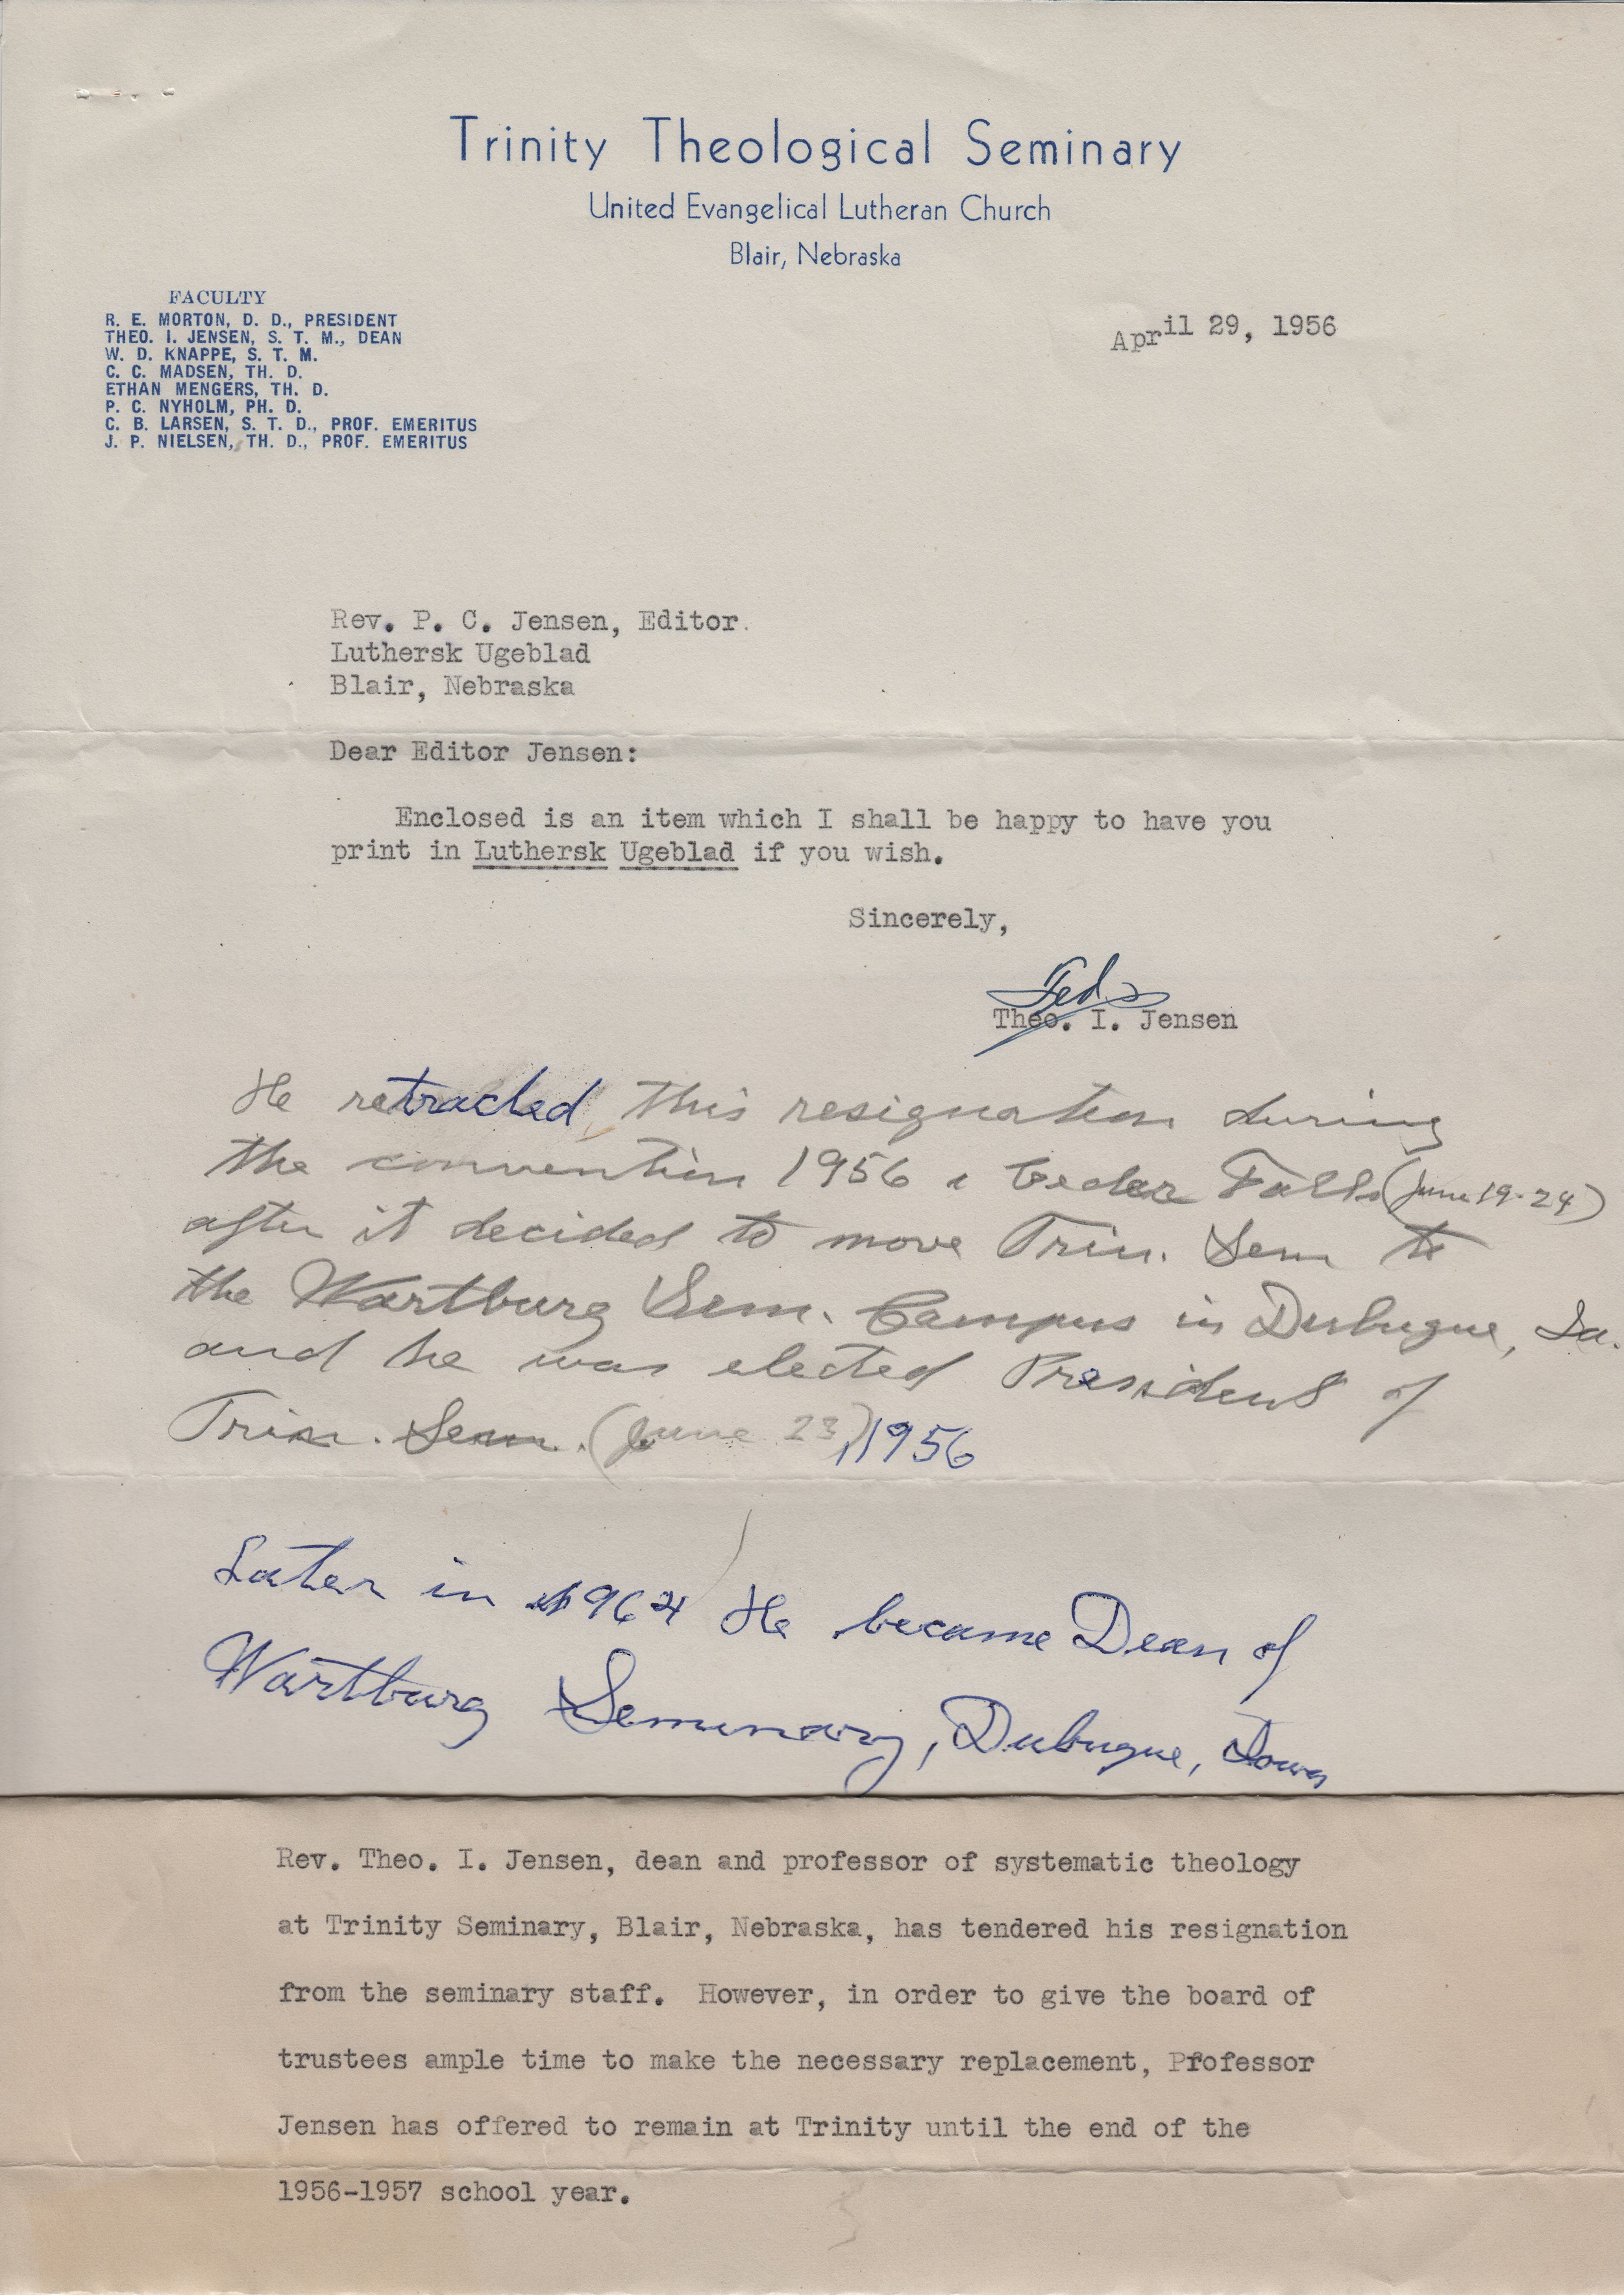 Trinity Theological Seminary
United Evangelical Lutheran Church
Blair, Nebraska
FACULTY
R. E. MORTON, D. D., PRESIDENT
THEO. I. JENSEN, S. T. M., DEAN
W. D. KNAPPE, S. T. M.
C. C. MADSEN, TH. D.
ETHAN MENGERS, TH. D.
P. C. NYHOLM, PH. D.
C. B. LARSEN, S. T. D., PROF. EMERITUS
J. P. NIELSEN, TH. D., PROF. EMERITUS
April 29, 1956
Rev. P. C. Jensen, Editor.
Luthersk Ugeblad
Blair, Nebraska
Dear Editor Jensen:
Enclosed is an item which I shall be happy to have you
print in Luthersk Ugeblad if you wish.
Sincerely,
Ted
Theo. I. Jensen
He retracted this resignation during
the convention 1956 i Cedar Falls (June 19-24)
after it decided to move Trin. Sem to
the Wartburg Sem. Campus in Dubuque, Ia.
and he was elected President of
Trin. Sem. (June 23), 1956
Later in 1964 He became Dean of
Wartburg Seminary, Dubuque, Iowa
Rev. Theo. I. Jensen, dean and professor of systematic theology
at Trinity Seminary, Blair, Nebraska, has tendered his resignation
from the seminary staff. However, in order to give the board of
trustees ample time to make the necessary replacement, Professor
Jensen has offered to remain at Trinity until the end of the
1956-1957 school year.